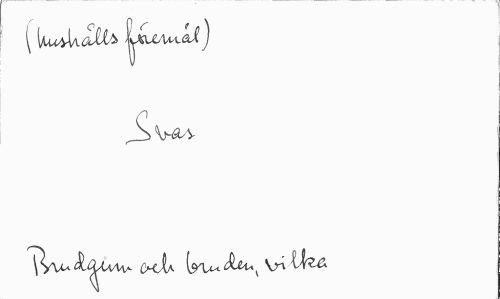 (hushålls föremål)
Svas
Brudgum och bruden, vilka